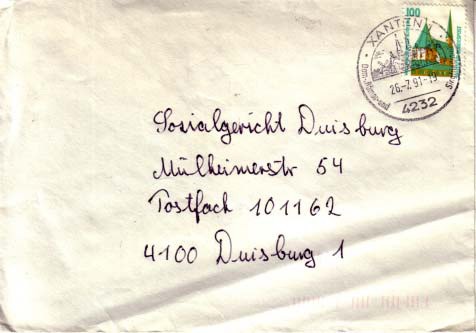 100
XANTEN 1
26.-7.91-19
Dom-, Römer- und
4232
Sozialgericht Duisburg
Mülheimerstr 54
Postfach 101162
4100 Duisburg 1